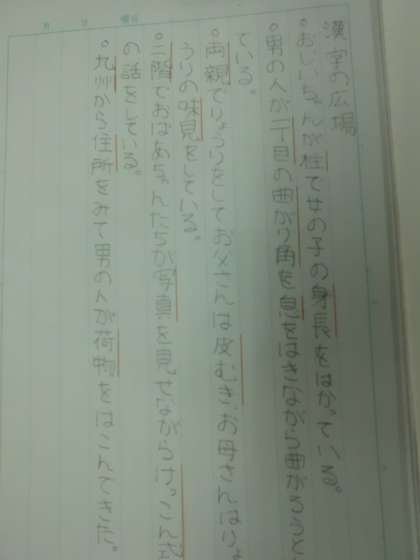 月 日 曜日
漢字の広場
・おじいちゃんが柱で女の子の身長をはかっている。
・男の人が二丁目の曲がり角を息をはきながら曲がろうと
ている。
・両親でりょうりをしてお父さんは皮むき、お母さんはりょ
うりの味見をしている。
・二階でおばあちゃんたちが写真を見せながらけっこん式
の話をしている。
・九州から住所をみて男の人が荷物をはこんできた。